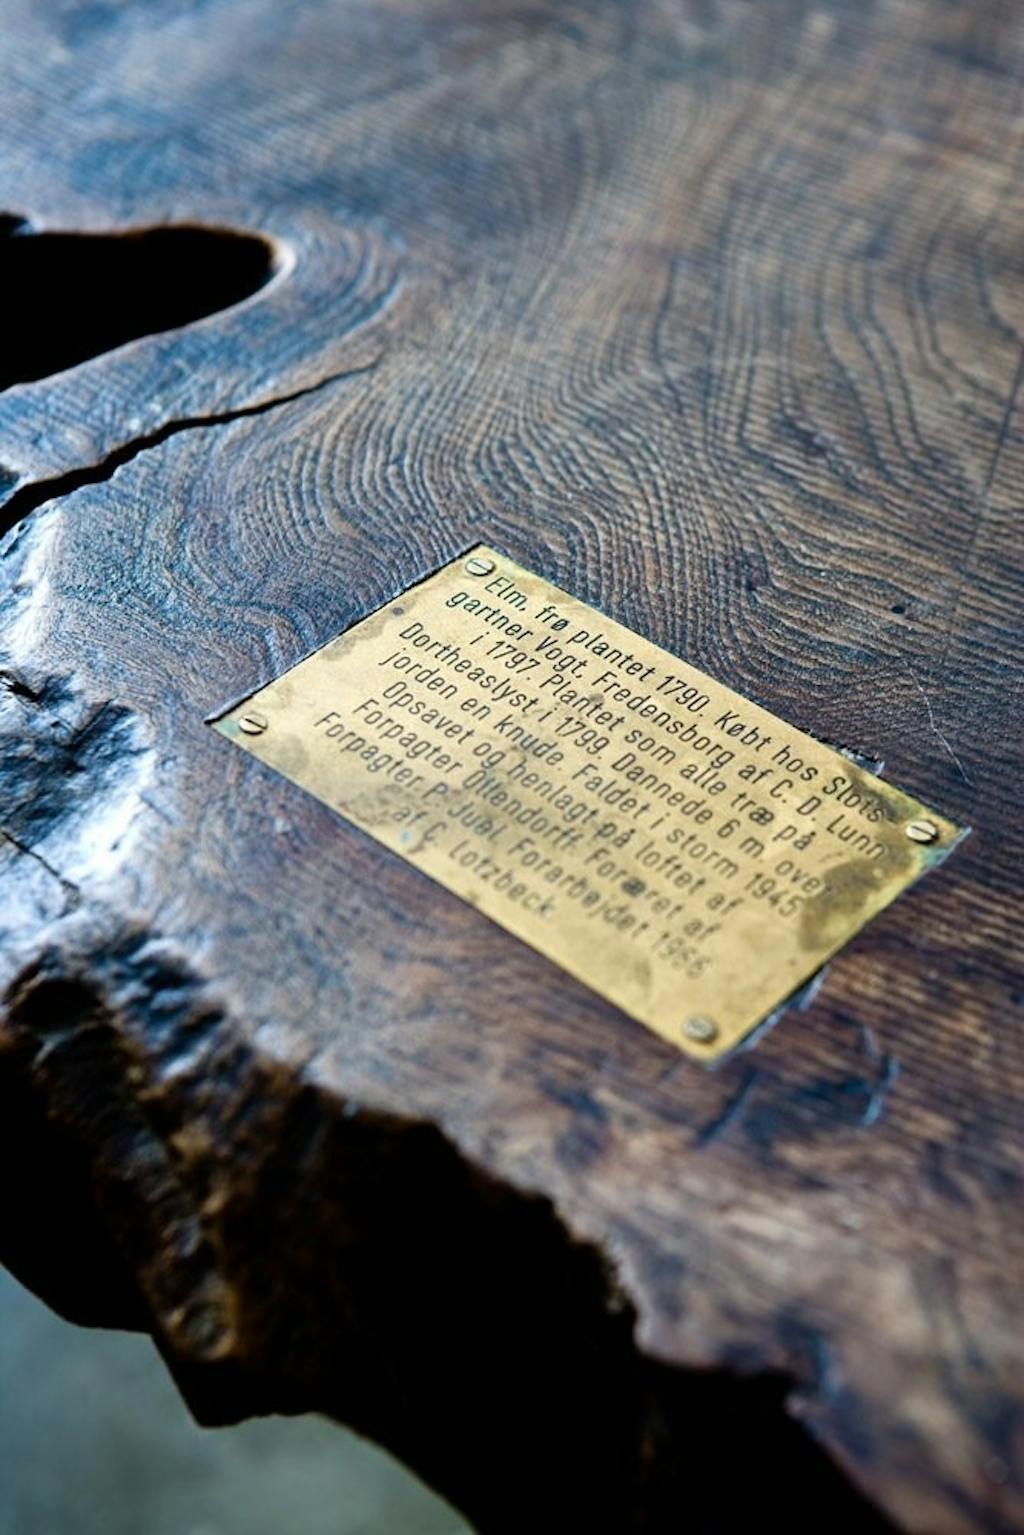 Elm, frø plantet 1790. Købt hos Slots
gartner Vogt, Fredensborg af C. D. Lunn
i 1797. Plantet som alle træ på
Dortheaslyst i 1799 Dannede 6 m. over
jorden en knude. Faldet i storm 1945
Opsavet og henlagt på loftet af
Forpagter Ottendorff. Foræret af
Forpagter P. Juel. Forarbejdet 1966
af C. Lotzbeck